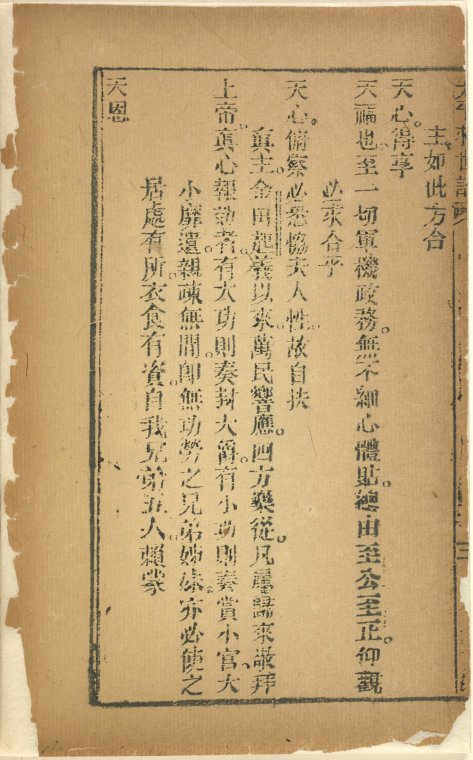 主。如此方合
天心。得享
天福也。至一切軍機政務。無不細心體貼。總由至公至正。仰觀
必求合乎
天心。俯察必悉協夫人性。故自扶
真主。金田起義以來。萬民響應。四方樂從。凡屬歸來敬拜
上帝。真心報効者。有大功則奏封大爵。有小功則奏賞小官。大
小靡遺。親疎無間。即無功勞之兄弟姊妹。亦必使之
居處有所。衣食有資。自我兄弟五人。賴蒙
天恩